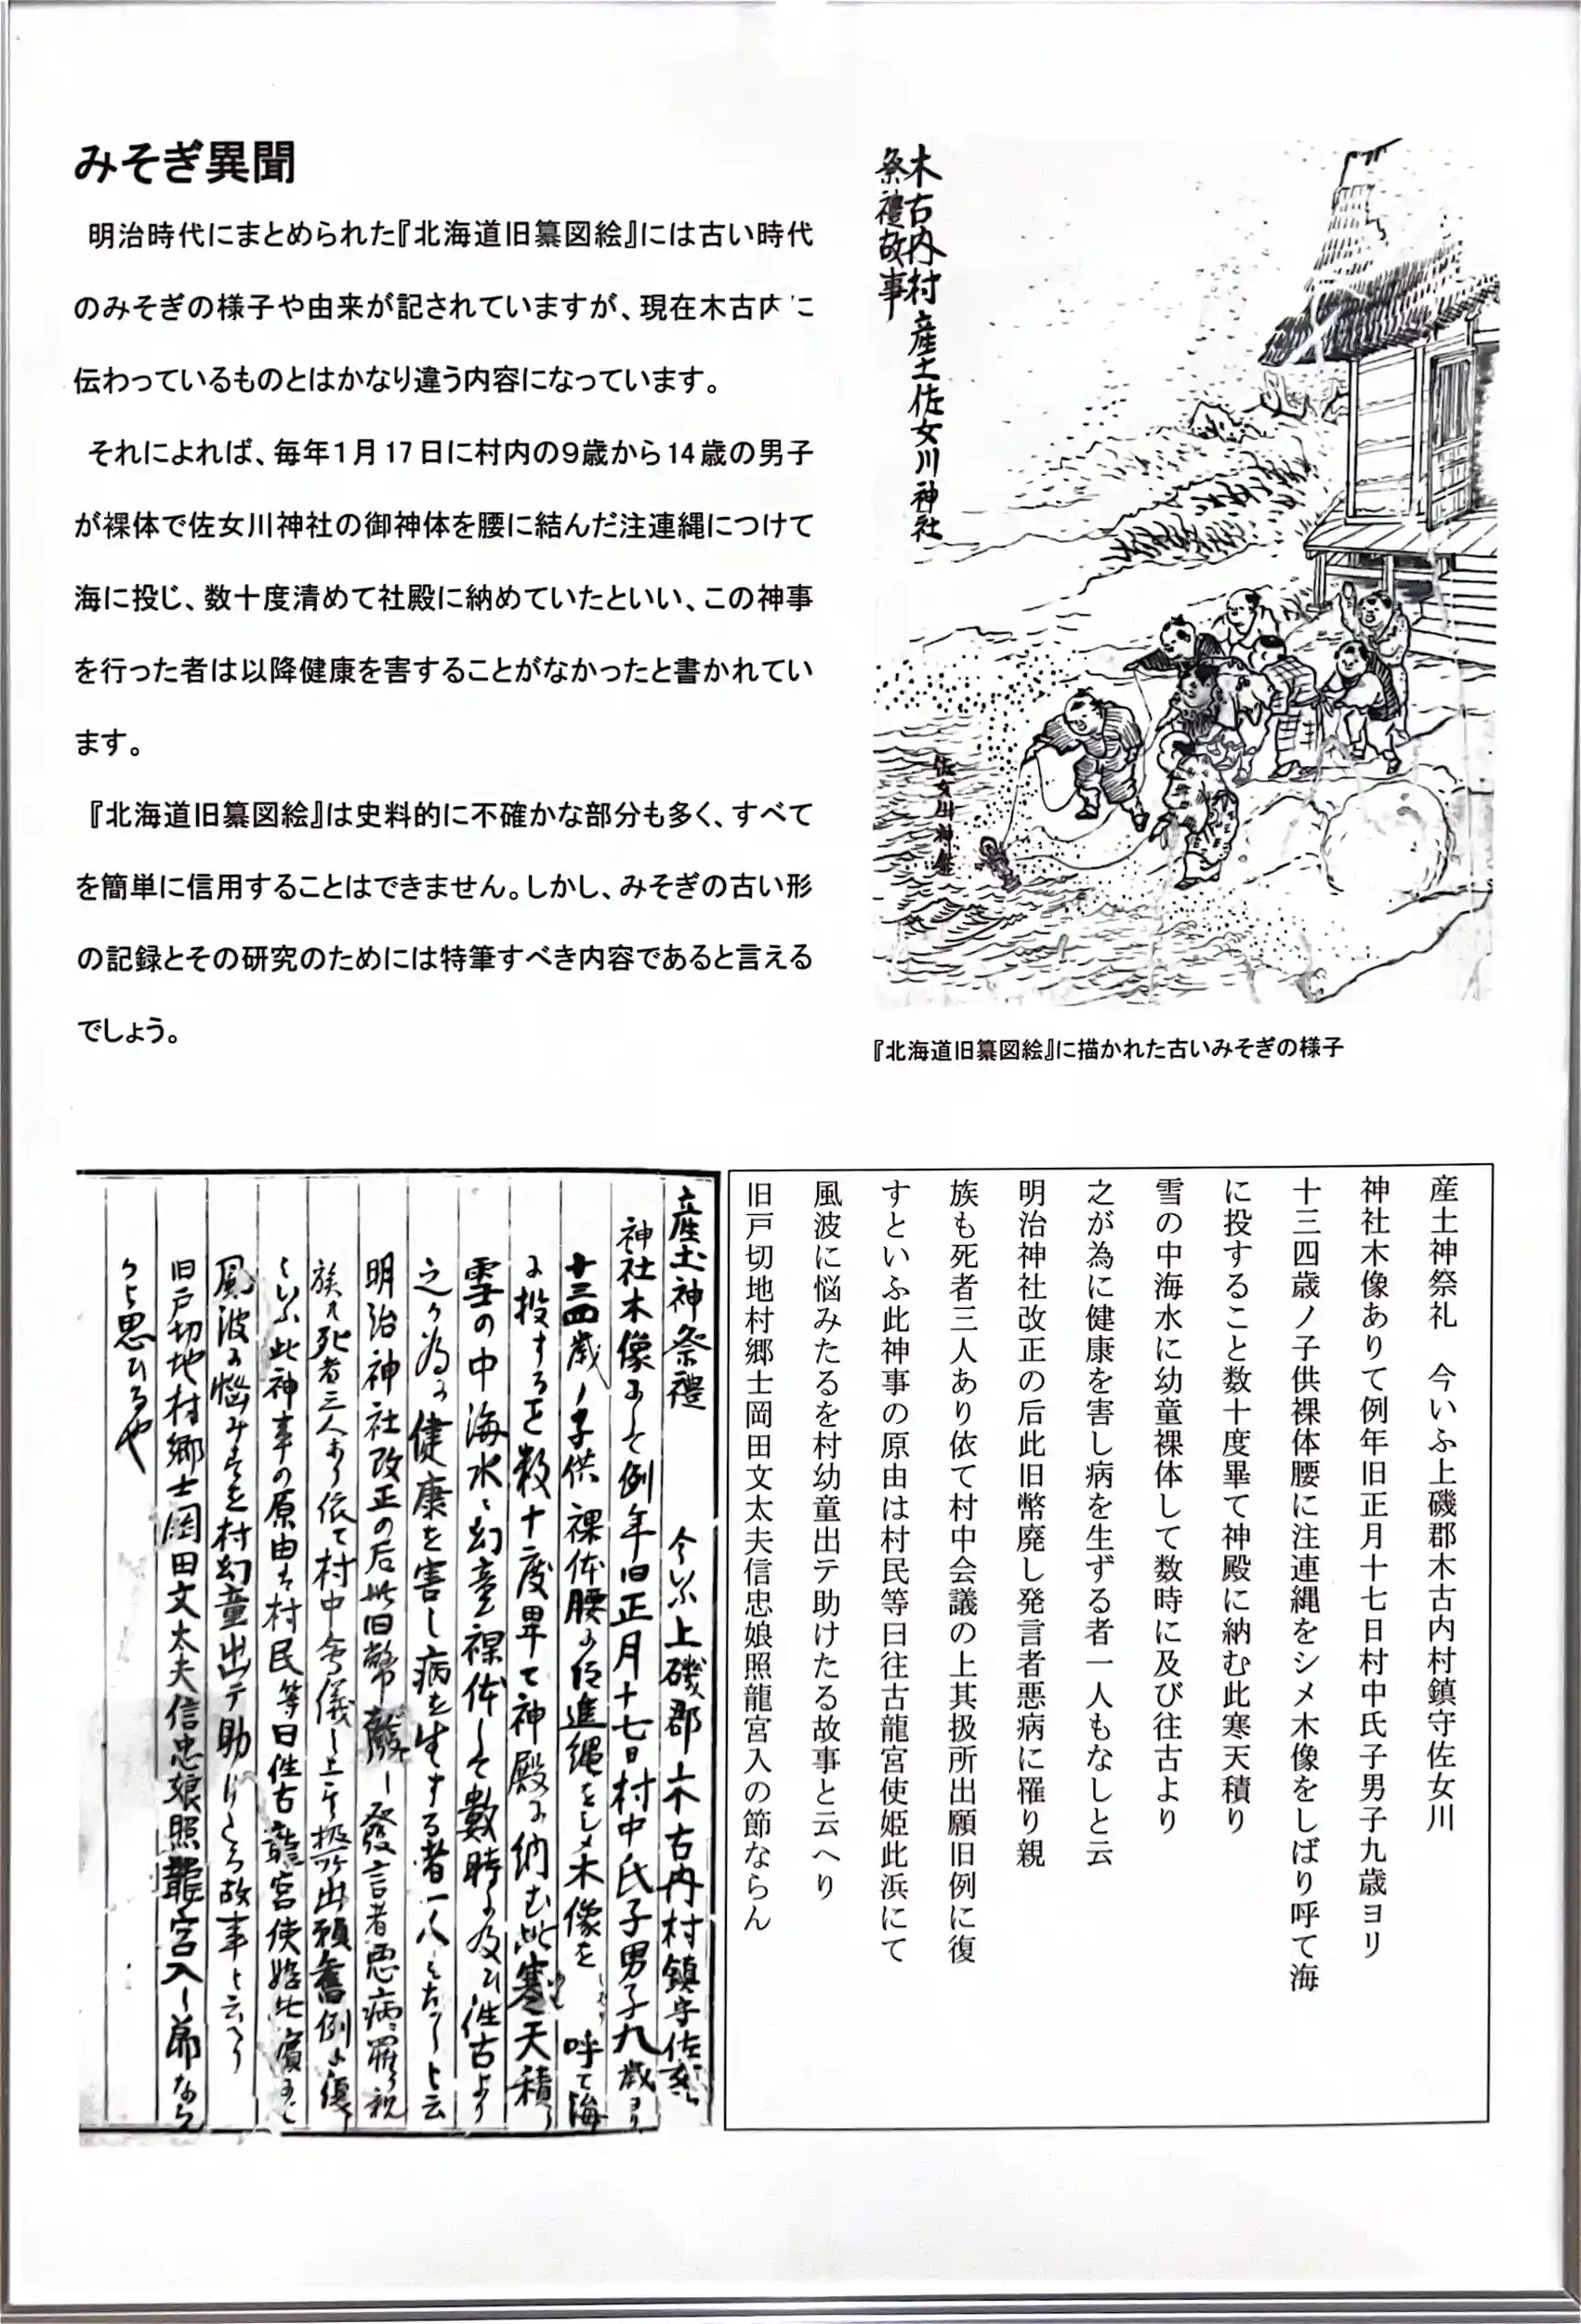 みそぎ異聞
明治時代にまとめられた『北海道旧纂図絵』には古い時代
のみそぎの様子や由来が記されていますが、現在木古内に
伝わっているものとはかなり違う内容になっています。
それによれば、毎年1月17日に村内の9歳から14歳の男子
が裸体で佐女川神社の御神体を腰に結んだ注連縄につけて
海に投じ、数十度清めて社殿に納めていたといい、この神事
を行った者は以降健康を害することがなかったと書かれてい
ます。
『北海道旧纂図絵』は史料的に不確かな部分も多く、すべて
を簡単に信用することはできません。しかし、みそぎの古い形
の記録とその研究のためには特筆すべき内容であると言える
でしょう。
木古内村産土佐女川神社
祭禮故事
佐女川神像
『北海道旧纂図絵』に描かれた古いみそぎの様子
産土神祭礼　今いふ上磯郡木古内村鎮守佐女川
神社木像ありて例年旧正月十七日村中氏子男子九歳ヨリ
十三四歳ノ子供裸体腰に注連縄をシメ木像をしばり呼て海
に投すること数十度畢て神殿に納む此寒天積り
雪の中海水に幼童裸体して数時に及び往古より
之が為に健康を害し病を生ずる者一人もなしと云
明治神社改正の后此旧幣廃し発言者悪病に罹り親
族も死者三人あり依て村中会議の上其扱所出願旧例に復
すといふ此神事の原由は村民等曰往古龍宮使姫此浜にて
風波に悩みたるを村幼童出テ助けたる故事と云へり
旧戸切地村郷士岡田文太夫信忠娘照龍宮入の節ならん
産土神祭禮　今いふ上磯郡木古内村鎮守佐女川
神社木像ありて例年旧正月十七日村中氏子男子九歳ヨリ
十三四歳ノ子供裸体腰に注連縄をシメ木像を呼て海
に投することを数十度畢て神殿に納む此寒天積り
雪の中海水に幻童裸体して數時に及ひ往古より
之か為に健康を害し病を生する者一人もなしと云
明治神社改正の后此旧幣廢し發言者悪病に罹り親
族も死者三人あり依て村中会儀の上其扱所出願舊例に復
といふ此神事の原由は村民等曰往古龍宮使姫此濱にて
風波に悩みたるを村幻童出テ助けたる故事と云へり
旧戸切地村郷士岡田文太夫信忠娘照龍宮入の節ならん
かと思ひるや